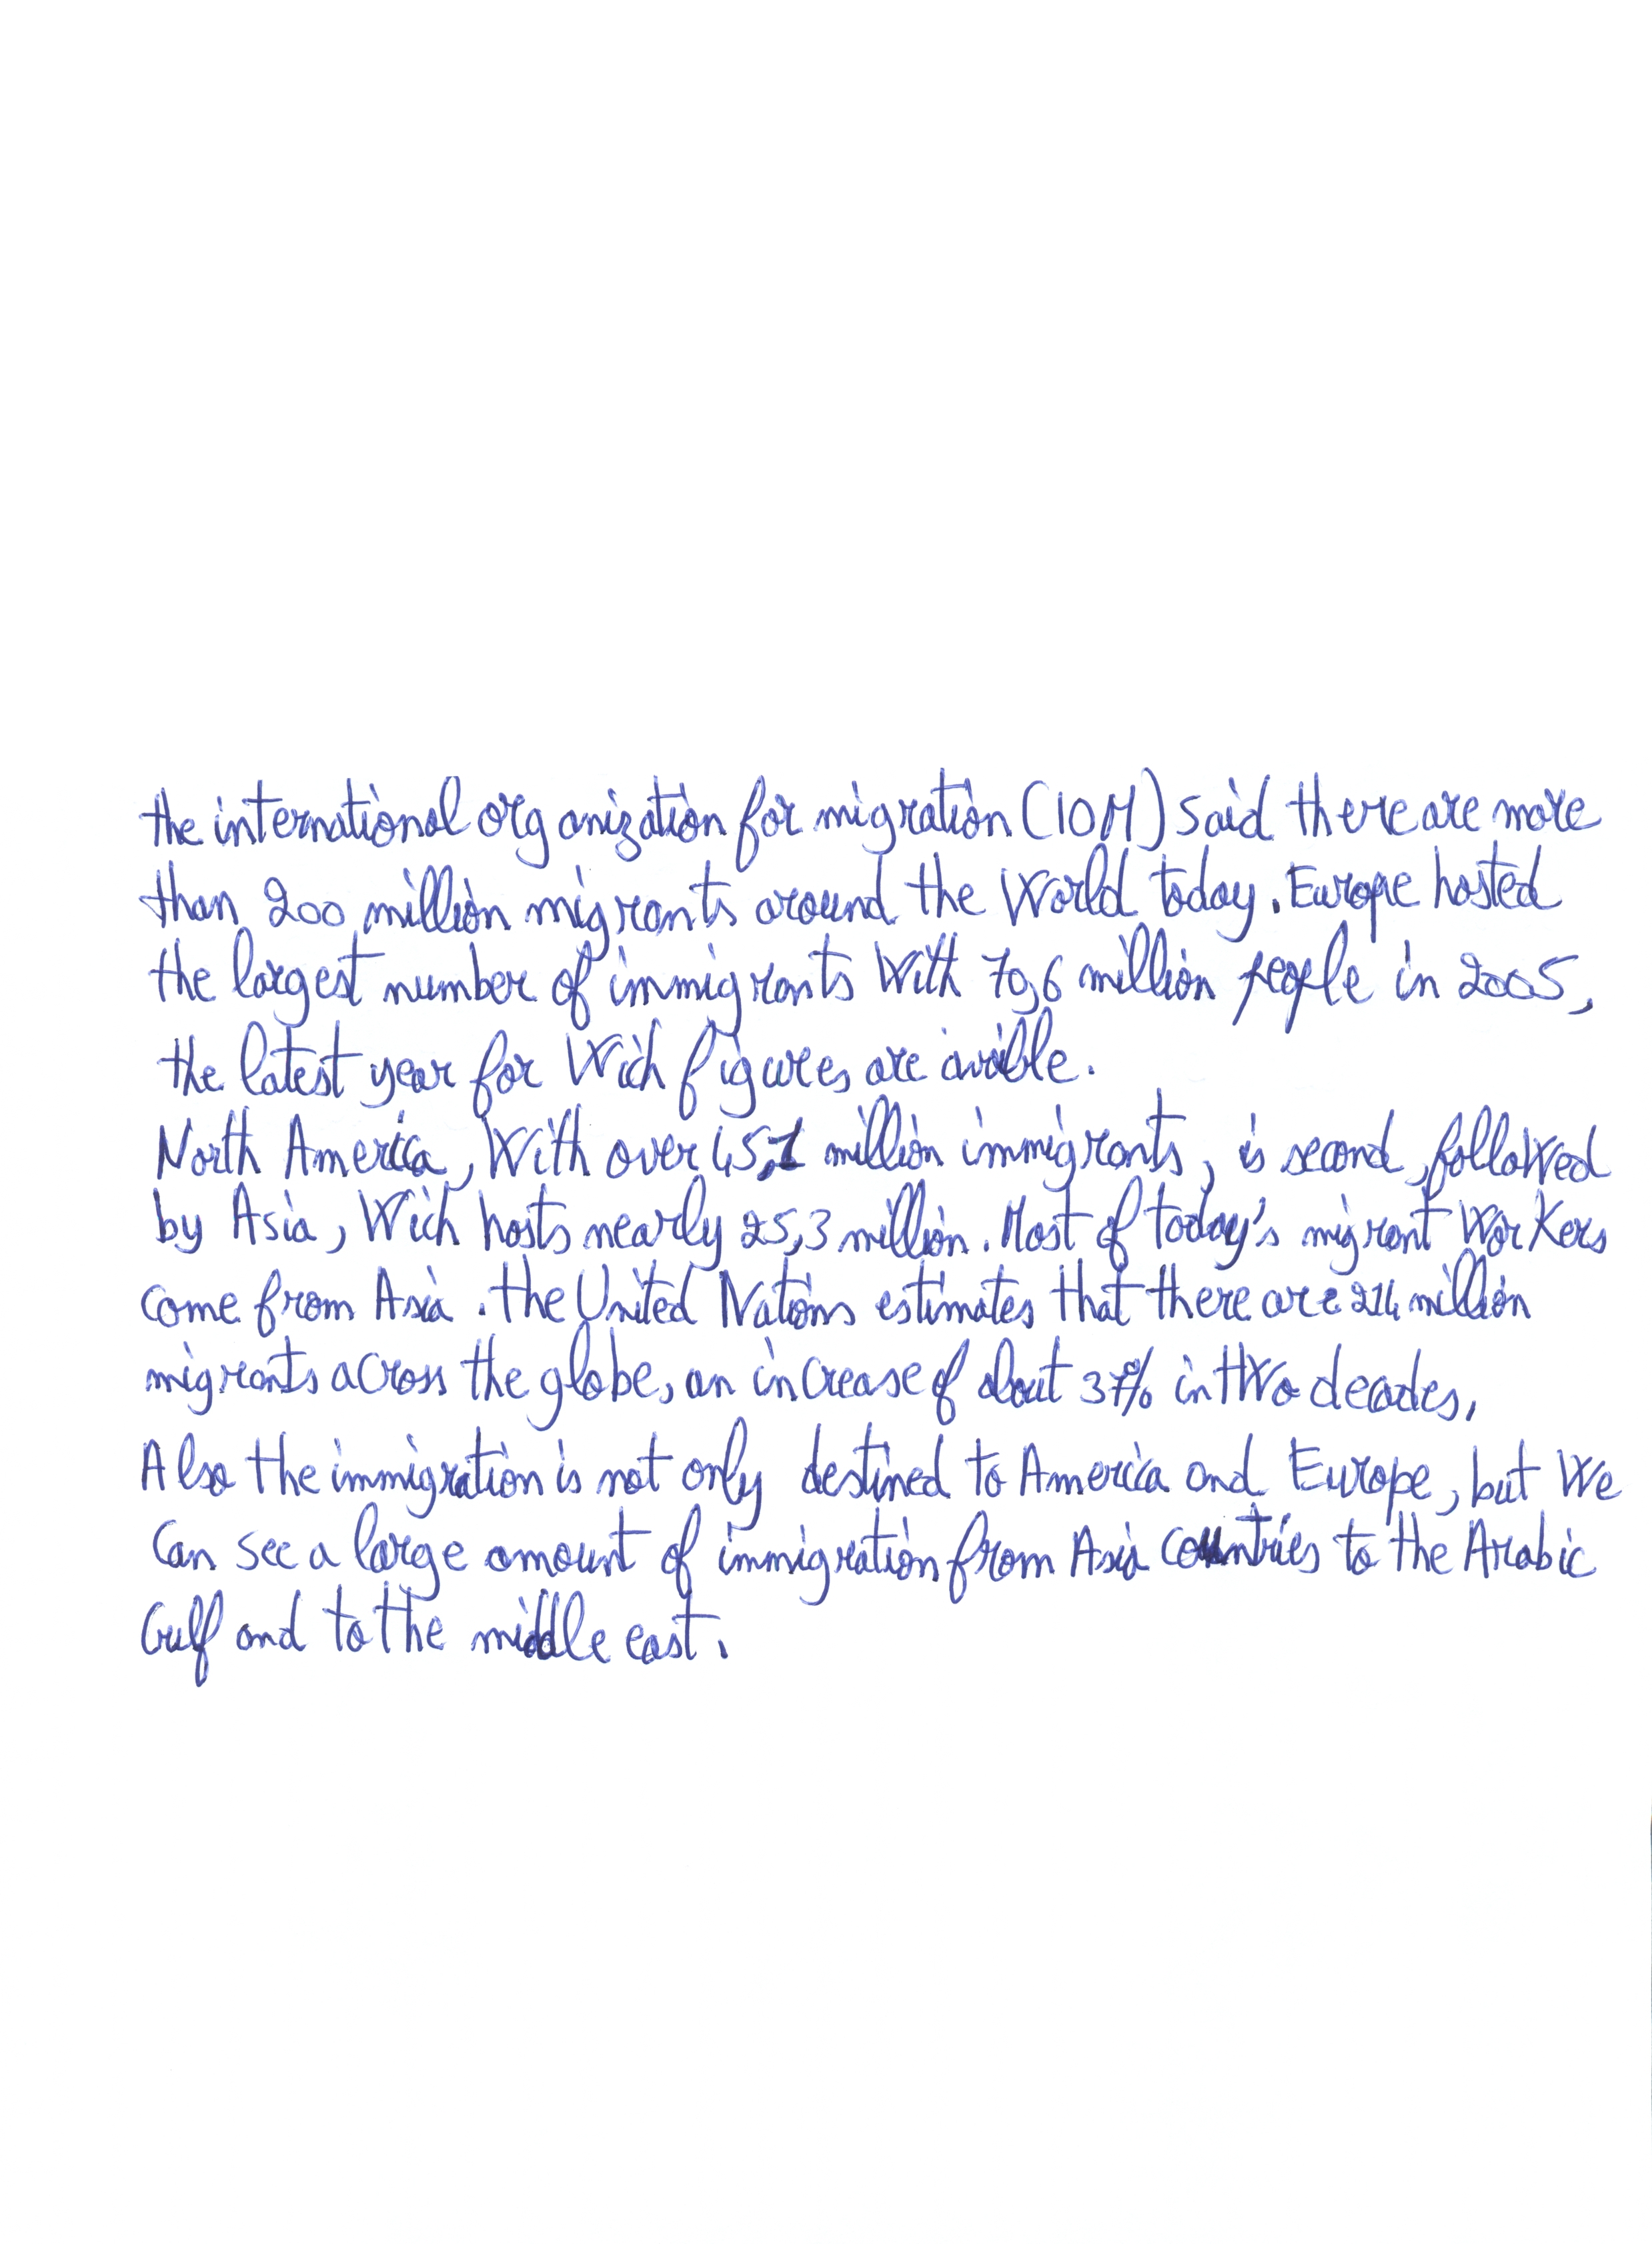 the international organization for migration (IOM) said there are more
than 200 million migrants around the World today. Europe hosted
the largest number of immigrants With 70,6 million people in 2005,
the latest year for Wich figures are avible.
North America, With over 45,1 million immigrants, is second, followed
by Asia, Wich hosts nearly 25,3 million. Most of today's migrant Workers
come from Asia. the United Nations estimates that there are 214 million
migrants across the globe, an increase of about 37% in tWo decades,
Also the immigration is not only destined to America and Europe, but We
Can see a large amount of immigration from Asia countries to the Arabic
Gulf and to the middle east.